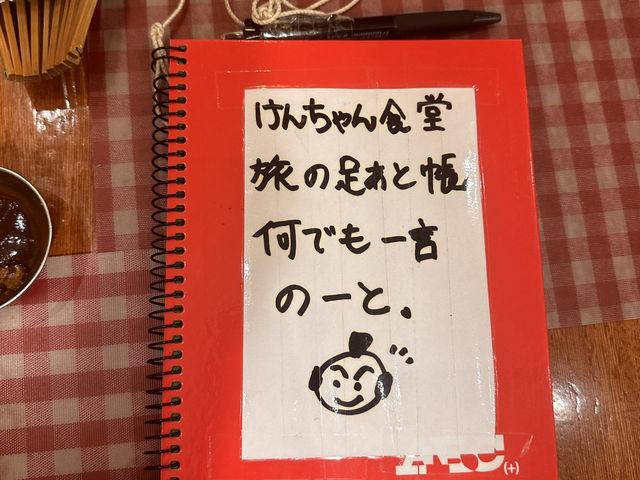 けんちゃん食堂
旅の足あと帳
何でも一言
のーと。
(+)